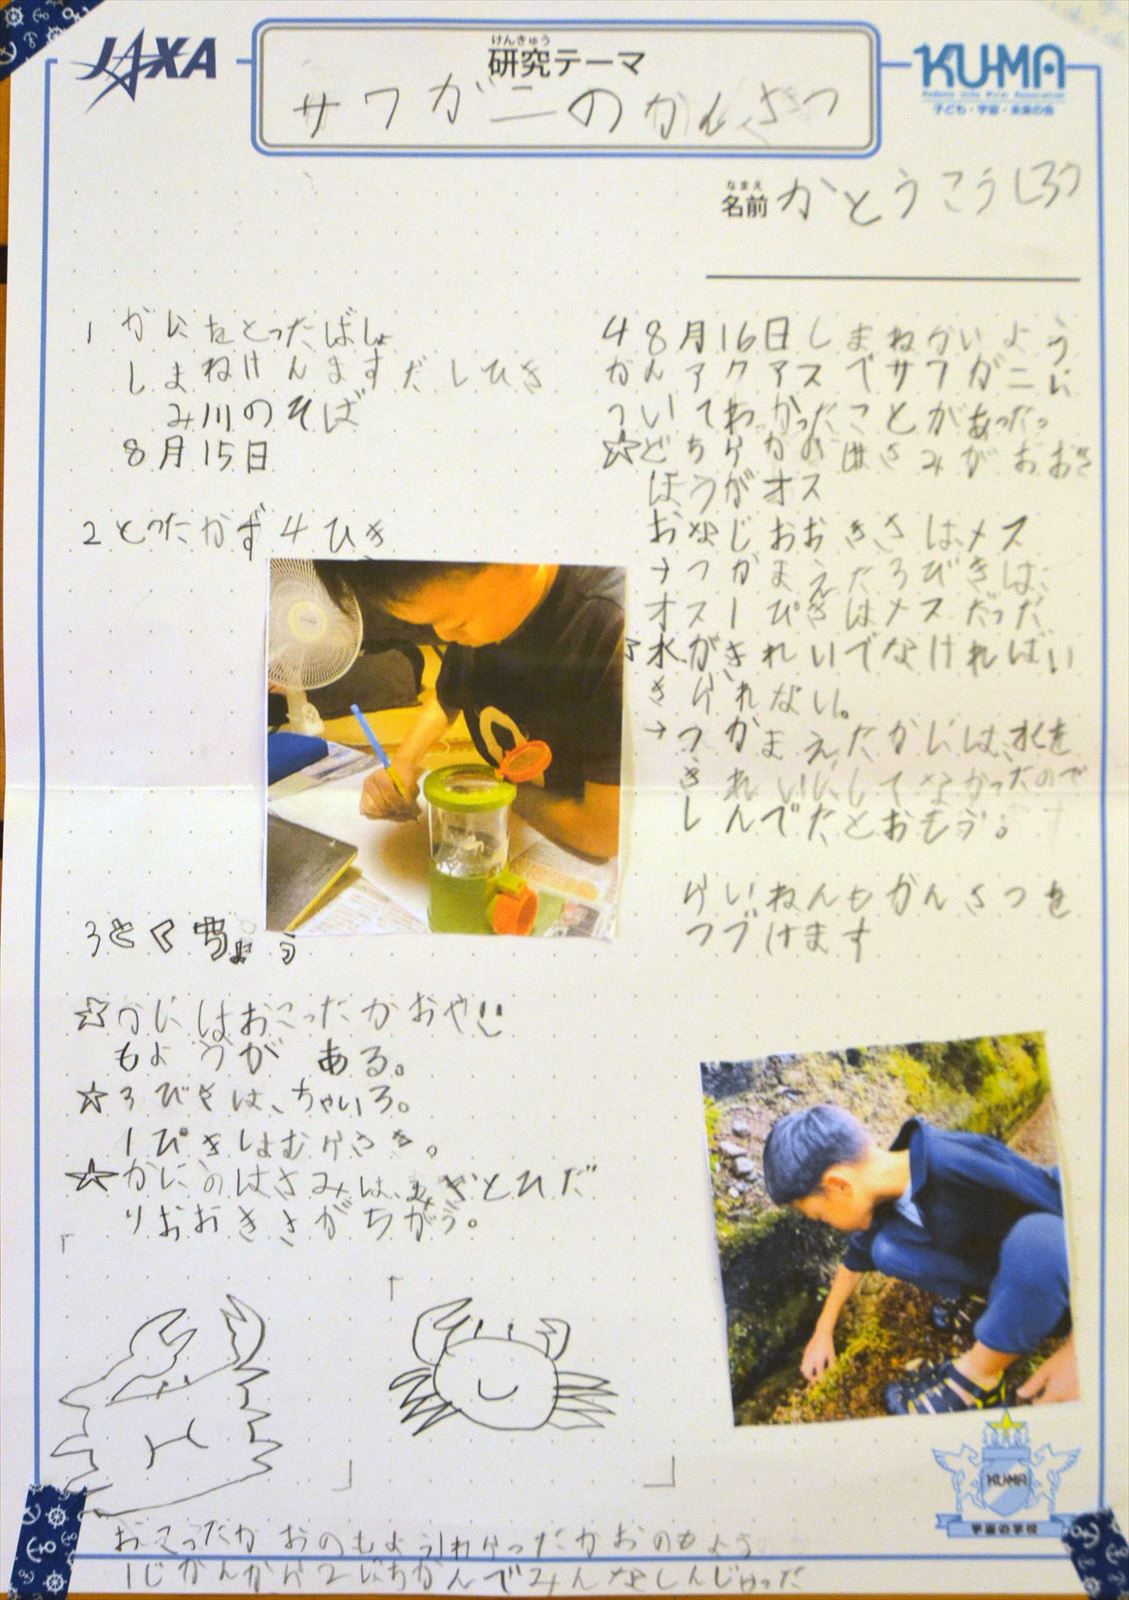 JAXA
けんきゅう
研究テーマ
サワガニのかんさつ
KU-MA
子ども・宇宙・未来の会
なまえ
名前 かとうこうしろう
1 かにをとったばしょ
しまねけんますだしひき
み川のそば
8月15日
2 とったかず 4 ひき
3 とくちょう
☆かにはおこったかおや
もようが ある。
☆3びきは、ちゃいろ。
1ぴきはむらさき。
☆かにのはさみは、みぎとひだ
りおおきさがちがう。
おこったかおのもようわらったかおのもよう
1じかんから2にちかんでみんなしんじゃった
4 8月16日しまねかいよう
かんアクアスでサワガニに
ついてわかったことがあった。
☆どちらかのはさみがおおき
ほうがオス
おなじおおきさはメス
→つかまえた3びきは、
オス1ぴきはメスだった
水がきれいでなければい
きられない。
→つかまえたかには、水を
きれいにしてなかったので
しんでたとおもう。
らいねんもかんさつを
つづけます
KU-MA
宇宙の学校